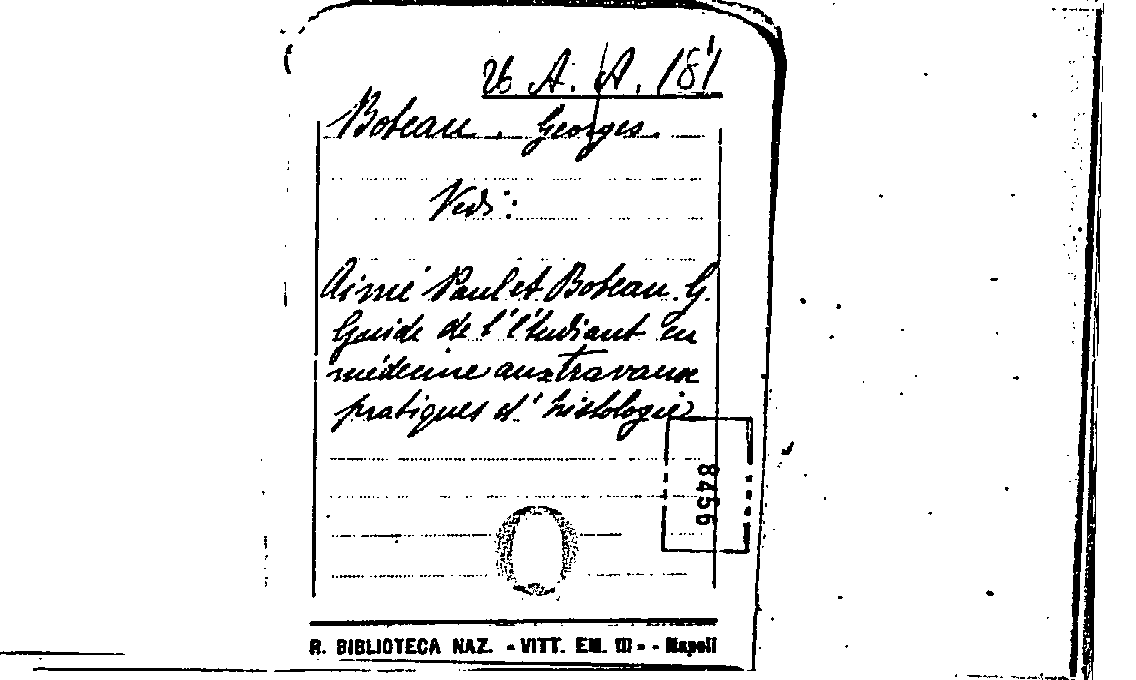 26 A. A. 181
Boteau. Georges.
Vedi:
Aimé Paul et Boteau. G.
Guide de l'Étudiant en
médecine aux travaux
pratiques d'histologie
8456
R. BIBLIOTECA NAZ. - VITT. EM. III - - Napoli